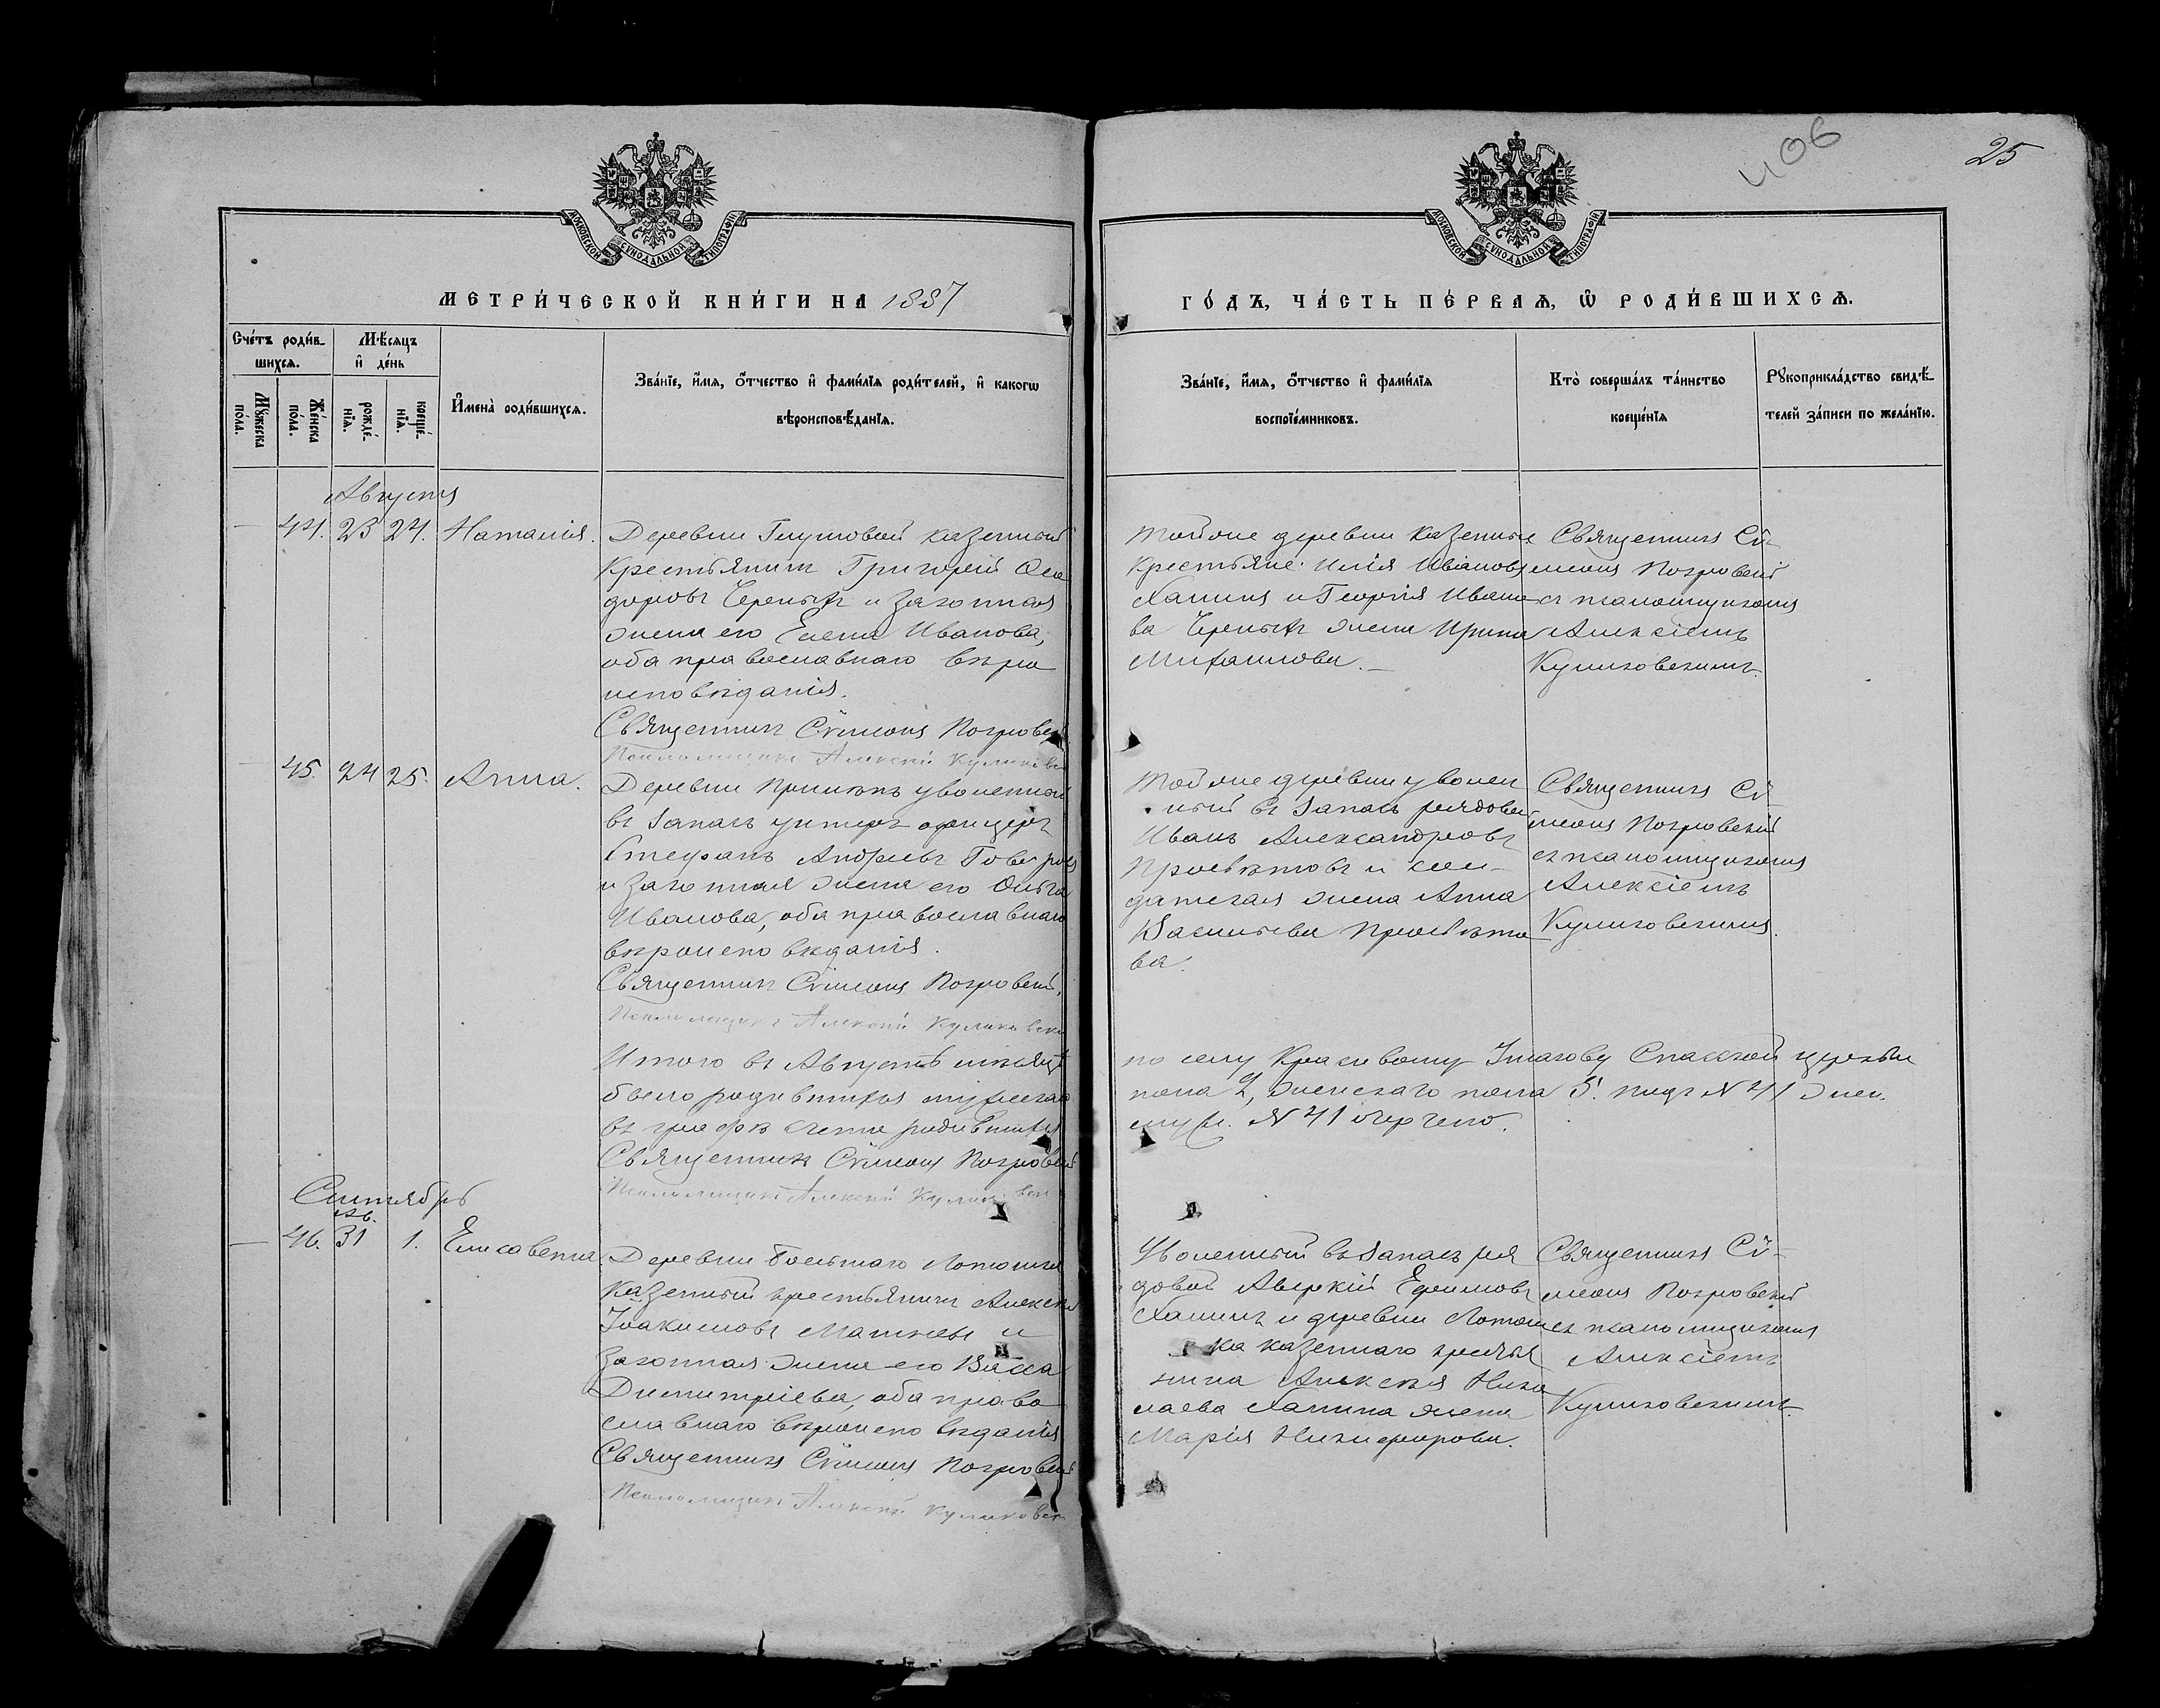 406
25
МОСКОВСКОЙ СѴНОДАЛЬНОЙ ТИПОГРАФІИ
МОСКОВСКОЙ СѴНОДАЛЬНОЙ ТИПОГРАФІИ
МЕТРИ́ЧЕСКОЙ КНИ́ГИ НА 1887
ГО́ДЪ, ЧА́СТЬ ПЕ́РВАѦ, Ѡ РОДИ́ВШИХСѦ.
Сче́тъ роди́в-
шихсѧ.
Му́жеска
по́ла.
Же́нска
по́ла.
Мѣ́сѧцъ
и҆ де́нь
рожде́-
нїѧ.
креще́-
нїѧ.
И҆мена̀ роди́вшихсѧ.
Зва́нїе, и҆́мѧ, ѻ҆́тчество и҆ фами́лїѧ роди́телей, и҆ како́гѡ
вѣроисповѣ́данїѧ.
Зва́нїе, и҆́мѧ, ѻ҆́тчество и҆ фами́лїѧ
воспрїе́мниковъ.
Кто̀ соверша́лъ та́инство
креще́нїѧ
Рꙋкоприкла́дство свидѣ́-
телей за́писи по жела́нїю.
Августъ
— 44. 23 24. Наталія.
Деревни казенный
крестьянинъ Григорій Ѳео
доровъ Черныхъ и законная
жена его Елена Иванова,
оба православнаго вѣро
исповѣданія.
Священникъ Сѵмеонъ Покровскій
Псаломщикъ Алексій Куликовск
Тойже деревни казенные
крестьяне: Илія Ивановъ
Халинъ и Георгія Ивано
ва Черныхъ жена Ирина
Михаилова.—
Священникъ Сѵ-
меонъ Покровскій
съ псаломщикомъ
Алексіемъ
Куликовскимъ.
— 45. 24 25. Анна.
Деревни уволенный
въ запасъ унтеръ-офицеръ
Стефанъ Андреевъ
и законная жена его Ольга
Иванова, оба православнаго
вѣроисповѣданія.
Священникъ Сѵмеонъ Покровскій,
Псаломщикъ Алексій Куликовски
Тойже деревни уволен
ный въ запасъ рядовой
Иванъ Александровъ
Просвѣтовъ и сол-
датская жена Анна
Васильева Просвѣто
ва.
Священникъ Сѵ-
меонъ Покровскій
съ псаломщикомъ
Алексіемъ
Куликовскимъ.
Итого въ Августѣ мѣсяцѣ
было родившихся мужескаго
въ графѣ счета родившихся
Священникъ Сѵмеонъ Покровскій
Псаломщикъ Алексій Куликовск
по селу Спасской церкви
пола 2, женскаго пола 5. подъ № 41 жен.
муж. № 41
Сентябрь
Ав.
— 46. 31 1. Елисавета
Деревни Большаго
казенный крестьянинъ Алексѣй
Іоакимовъ и
законная жена его Васса
Димитріева, оба право
славнаго вѣроисповѣданія
Священникъ Сѵмеонъ Покровскій
Псаломщикъ Алексій Куликовск
Уволенный въ запасъ ря
довой Аверкій Ефимовъ
Халинъ и деревни
ка казеннаго крестья
нина Алексѣя Нико
лаева Халина жена
Марія Никифорова.
Священникъ Сѵ-
меонъ Покровскій
съ псаломщикомъ
Алексіемъ
Куликовскимъ.